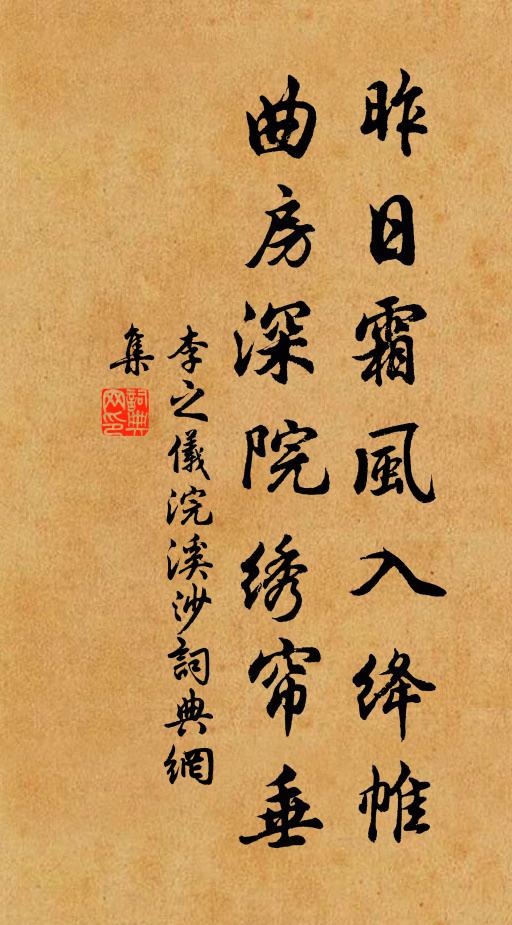 昨日霜風入绛帷
曲房深院绣帘垂
李之儀浣溪沙詞典網
集
詞典網印